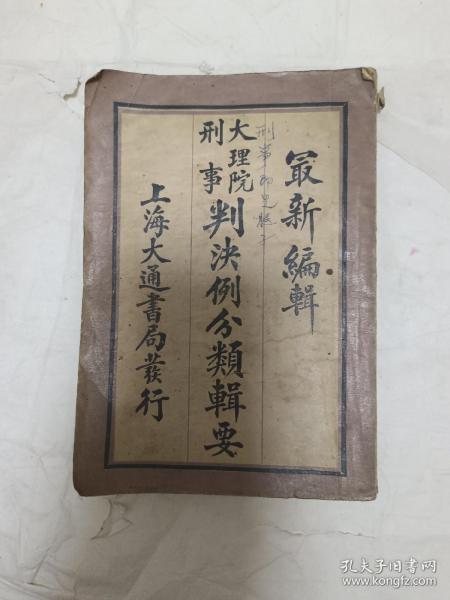 最新編輯
大理院
刑事
判決例分類輯要
上海大通書局發行
孔夫子旧书网
www.kongfz.com